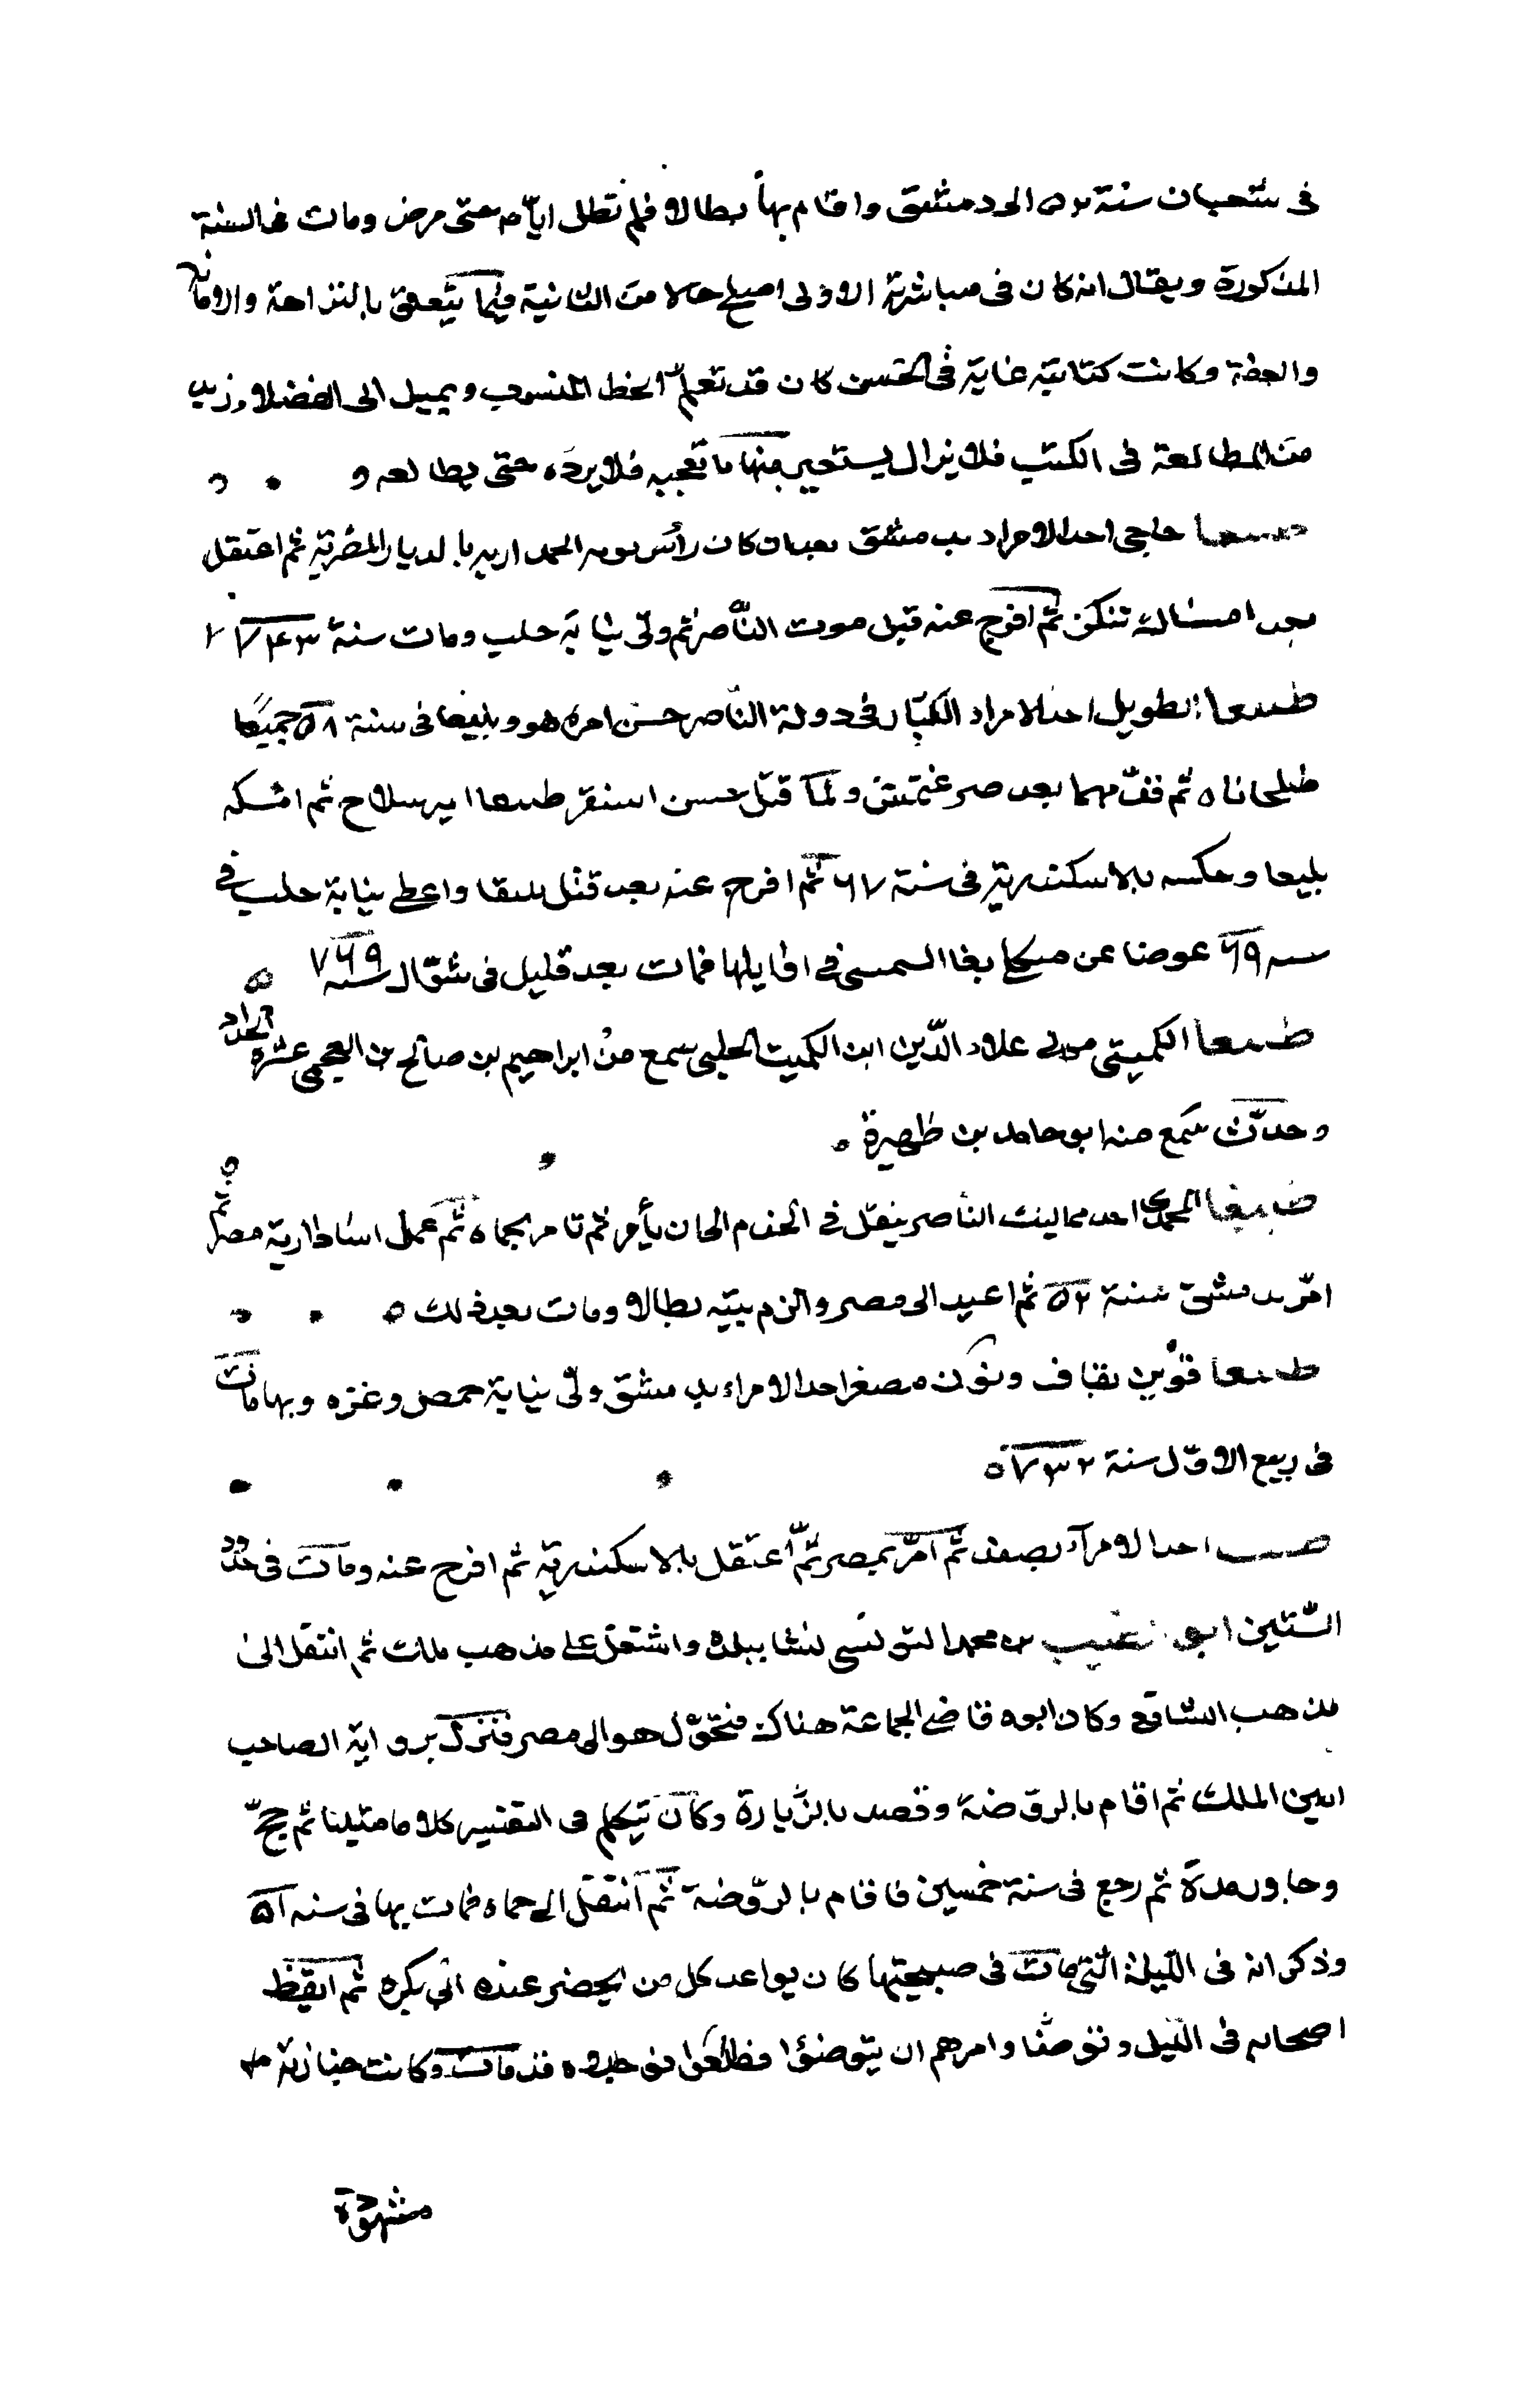 فى شعبان سنة ٥٣ الى دمشق واقام بها بطالا فلم تطل ايامه حتى مرض ومات فى السنة
المذكورة ويقال انه كان فى مباشرته الاولى اصلح حالا من الثانية فيما يتعلق بالنزاهة والامانة
والعفة وكانت كتابته غاية فى الحسن كان قد تعلم الخط المنسوب ويميل الى الفضلا ويزيد
من المطالعة فى الكتب فلا يزال يستعير منها ما تعجبه فلا يرده حتى يطالعه و
طيبغا حاجى احد الامراء بدمشق كان رأس نوبه الجمداريه بالديار المصرية ثم اعتقل
بعد امساك تنكز ثم افرج عنه قبل موت الناصر ثم ولى نيابة حلب ومات سنة ٧٤٣
طيبغا الطويل احد الامراء الكبار فى دولة الناصر حسن امره هو ويلبغا فى سنة ٥٨ جميعا
طبلخاناه ثم قدمهما بعد صرغتمش ولما قتل حسن استقر طيبغا امير سلاح ثم امسكه
يلبغا وحبسه بالاسكندرية فى سنة ٦٧ ثم افرج عنه بعد قتل يلبغا واعطى نيابة حلب فى
سنه ٦٩ عوضا عن منكلى بغا الشمسى فى اوايلها فمات بعد قليل فى شوال سنه ٧٦٩
طيبغا الكميتى مولى علاء الدين ابن الكميت الحلبى سمع من ابراهيم بن صالح بن العجمى عشرة الحداد
وحدث سمع منه ابو حامد بن ظهيرة
طيبغا المحمدى احد مماليك الناصر ينقل فى الخدم الى ان تأمر ثم تامر بحماه ثم عمل استادارية مصر ثم
امر بدمشق سنة ٥٢ ثم اعيد الى مصر والزم بيته بطالا ومات بعد ذلك
طيبغا قوين بقاف ونون مصغر احد الامراء بدمشق ولى نيابة حمص وغزه وبها مات
فى ربيع الاول سنة ٧٣٢
احد الامرآء بصفد ثم امر بمصر ثم اعتقل بالاسكندرية ثم افرج عنه ومات فى حدود
الستين ابو محمد التونسى نشا ببلده واشتغل على مذهب مالك ثم انتقل الى
مذهب الشافعى وكان ابوه قاضى الجماعة هناك فتحول هو الى مصر فنزل بزاوية الصاحب
امين الملك ثم اقام بالروضة وقصد بالزيارة وكان يتكلم فى التفسير كلاما متينا ثم حج
وجاور مدة ثم رجع فى سنة خمسين فاقام بالروضة ثم انتقل الى حماه فمات بها فى سنه ٥١
وذكر انه فى الليلة التى مات فى صبيحتها كان يواعد كل من يحضر عنده الى بكره ثم ايقظ
اصحابه فى الليل وتوضا وامرهم ان يتوضئوا فطلعوا فوجدوه قد مات وكانت جنازته
مشهودة